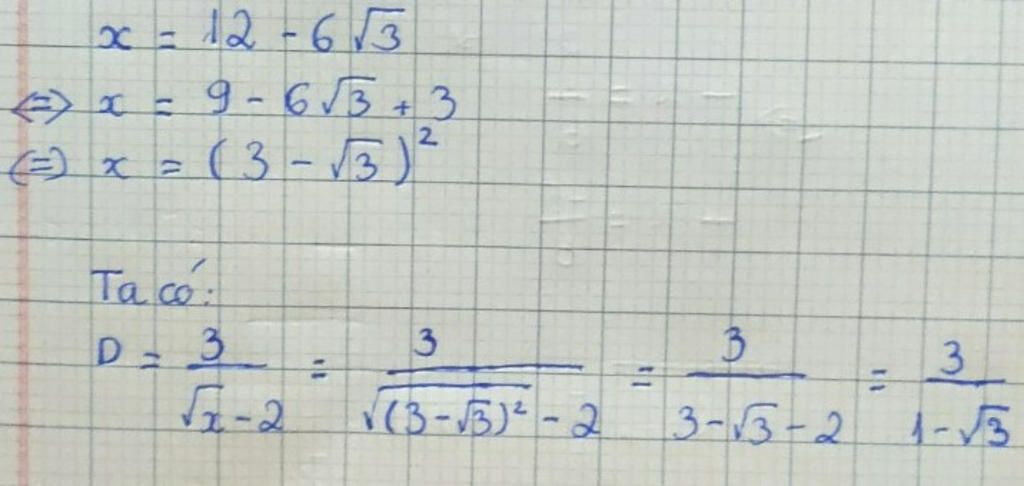 x = 12 - 6√3
⇔ x = 9 - 6√3 + 3
⇔ x = (3 - √3)²
Ta có:
D = 3/(√x - 2) = 3/(√((3-√3)²) - 2) = 3/(3-√3-2) = 3/(1-√3)